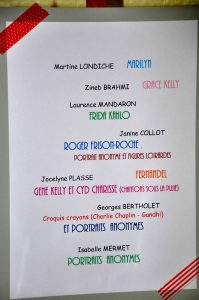 Martine LONDICHE MARILYN
Zineb BRAHMI GRACE KELLY
Laurence MANDARON
FRIDA KAHLO
Janine COLLOT
ROGER FRISON-ROCHE .
PORTRAIT ANONYME ET FIGURES LOIRARDES
Jocelyne PLASSE FERNANDEL
GENE KELLY ET CYD CHARISSE (CHANTONS SOUS LA PLUIE)
Georges BERTHOLET
Croquis crayons (Charlie Chaplin - Gandhi)
ET PORTRAITS ANONYMES
Isabelle MERMET
PORTRAITS ANONYMES